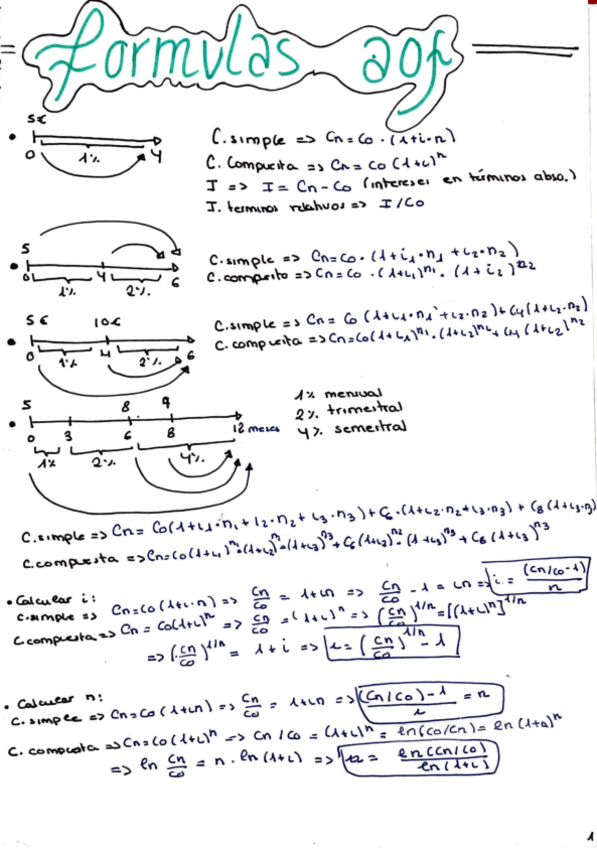 formulas aof
5€
0 1% 4
C.simple => Cn = Co · (1+i·n)
C. Compuesta => Cn = Co (1+i)^n
I => I = Cn - Co (intereses en términos abso.)
I. terminos relativos => I/Co
5
0 4 6
1% 2%
C.simple => Cn = Co · (1+i1·n1 + i2·n2)
C. compuesto => Cn = Co · (1+i1)^n1 · (1+i2)^n2
5€ 10€
0 4 6
1% 2%
C.simple => Cn = Co (1+i1·n1 + i2·n2) + C4 (1+i2·n2)
C. compuesta => Cn = Co (1+i1)^n1 · (1+i2)^n2 + C4 (1+i2)^n2
5 8 9
0 3 6 8 12 meses
1% 2% 4%
1% mensual
2% trimestral
4% semestral
C.simple => Cn = Co (1+i1·n1 + i2·n2 + i3·n3) + C6 · (1+i2·n2+i3·n3) + C8 (1+i3·n3)
C.compuesta => Cn = Co (1+i1)^n1 · (1+i2)^n2 · (1+i3)^n3 + C6 (1+i2)^n2 · (1+i3)^n3 + C8 (1+i3)^n3
• Calcular i:
C.simple => Cn = Co (1+i·n) => Cn/Co = 1+in => Cn/Co - 1 = in => i = (Cn/Co-1)/n
C.compuesta => Cn = Co(1+i)^n => Cn/Co = (1+i)^n => (Cn/Co)^1/n = [(1+i)^n]^1/n
=> (Cn/Co)^1/n = 1+i => i = (Cn/Co)^1/n - 1
• Calcular n:
C. simple => Cn = Co (1+in) => Cn/Co = 1+in => (Cn/Co)-1/i = n
C. compuesta => Cn = Co (1+i)^n => Cn/Co = (1+i)^n = ln(Co/Cn) = ln(1+i)^n
=> ln Cn/Co = n · ln (1+i) => n = ln(Cn/Co)/ln(1+i)
1